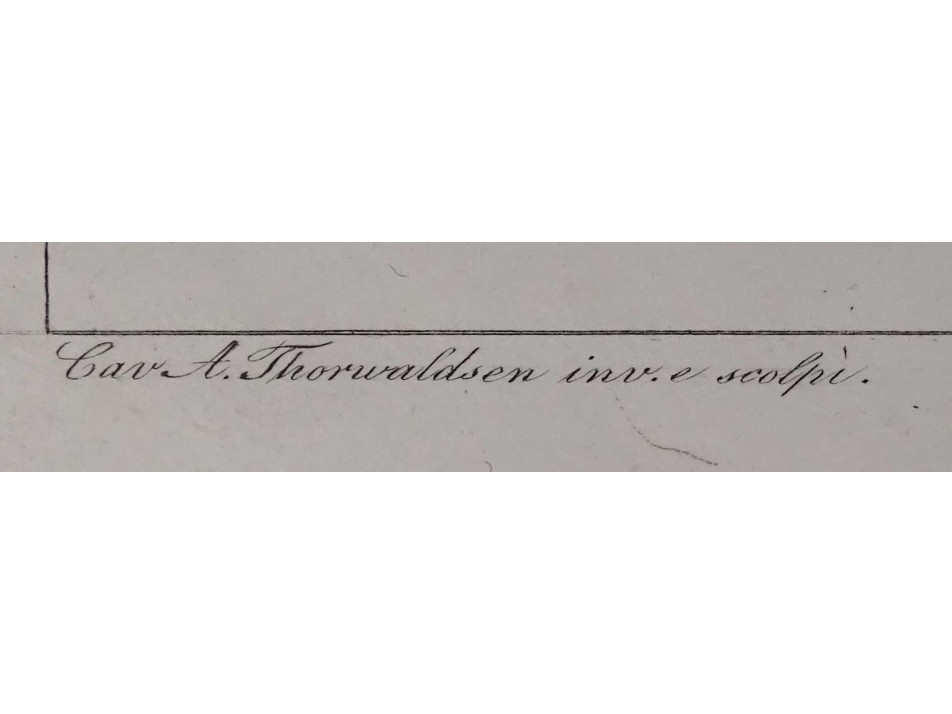 Cav A. Thorwaldsen inv. e scolpì.